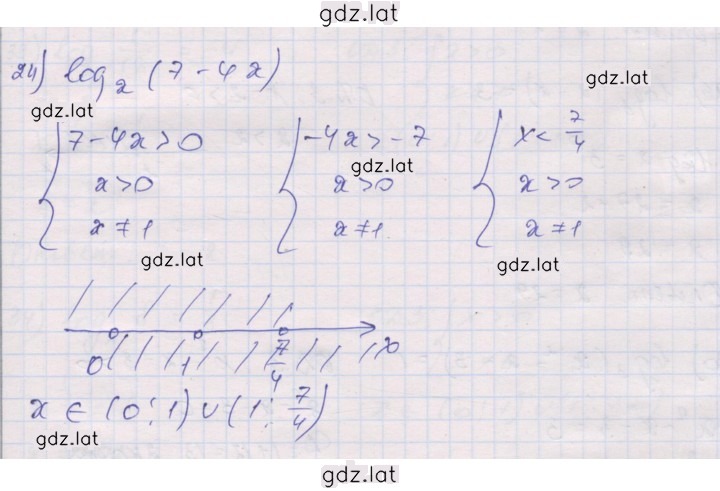 gdz.lat
24) log_x (7 - 4x)
gdz.lat
gdz.lat
{ 7 - 4x > 0 { -4x > -7 { x < 7/4
gdz.lat
x > 0 x > 0 x > 0
x ≠ 1 x ≠ 1 x ≠ 1
gdz.lat gdz.lat
0 1 7/4 x
x ∈ (0; 1) ∪ (1; 7/4)
gdz.lat
gdz.lat